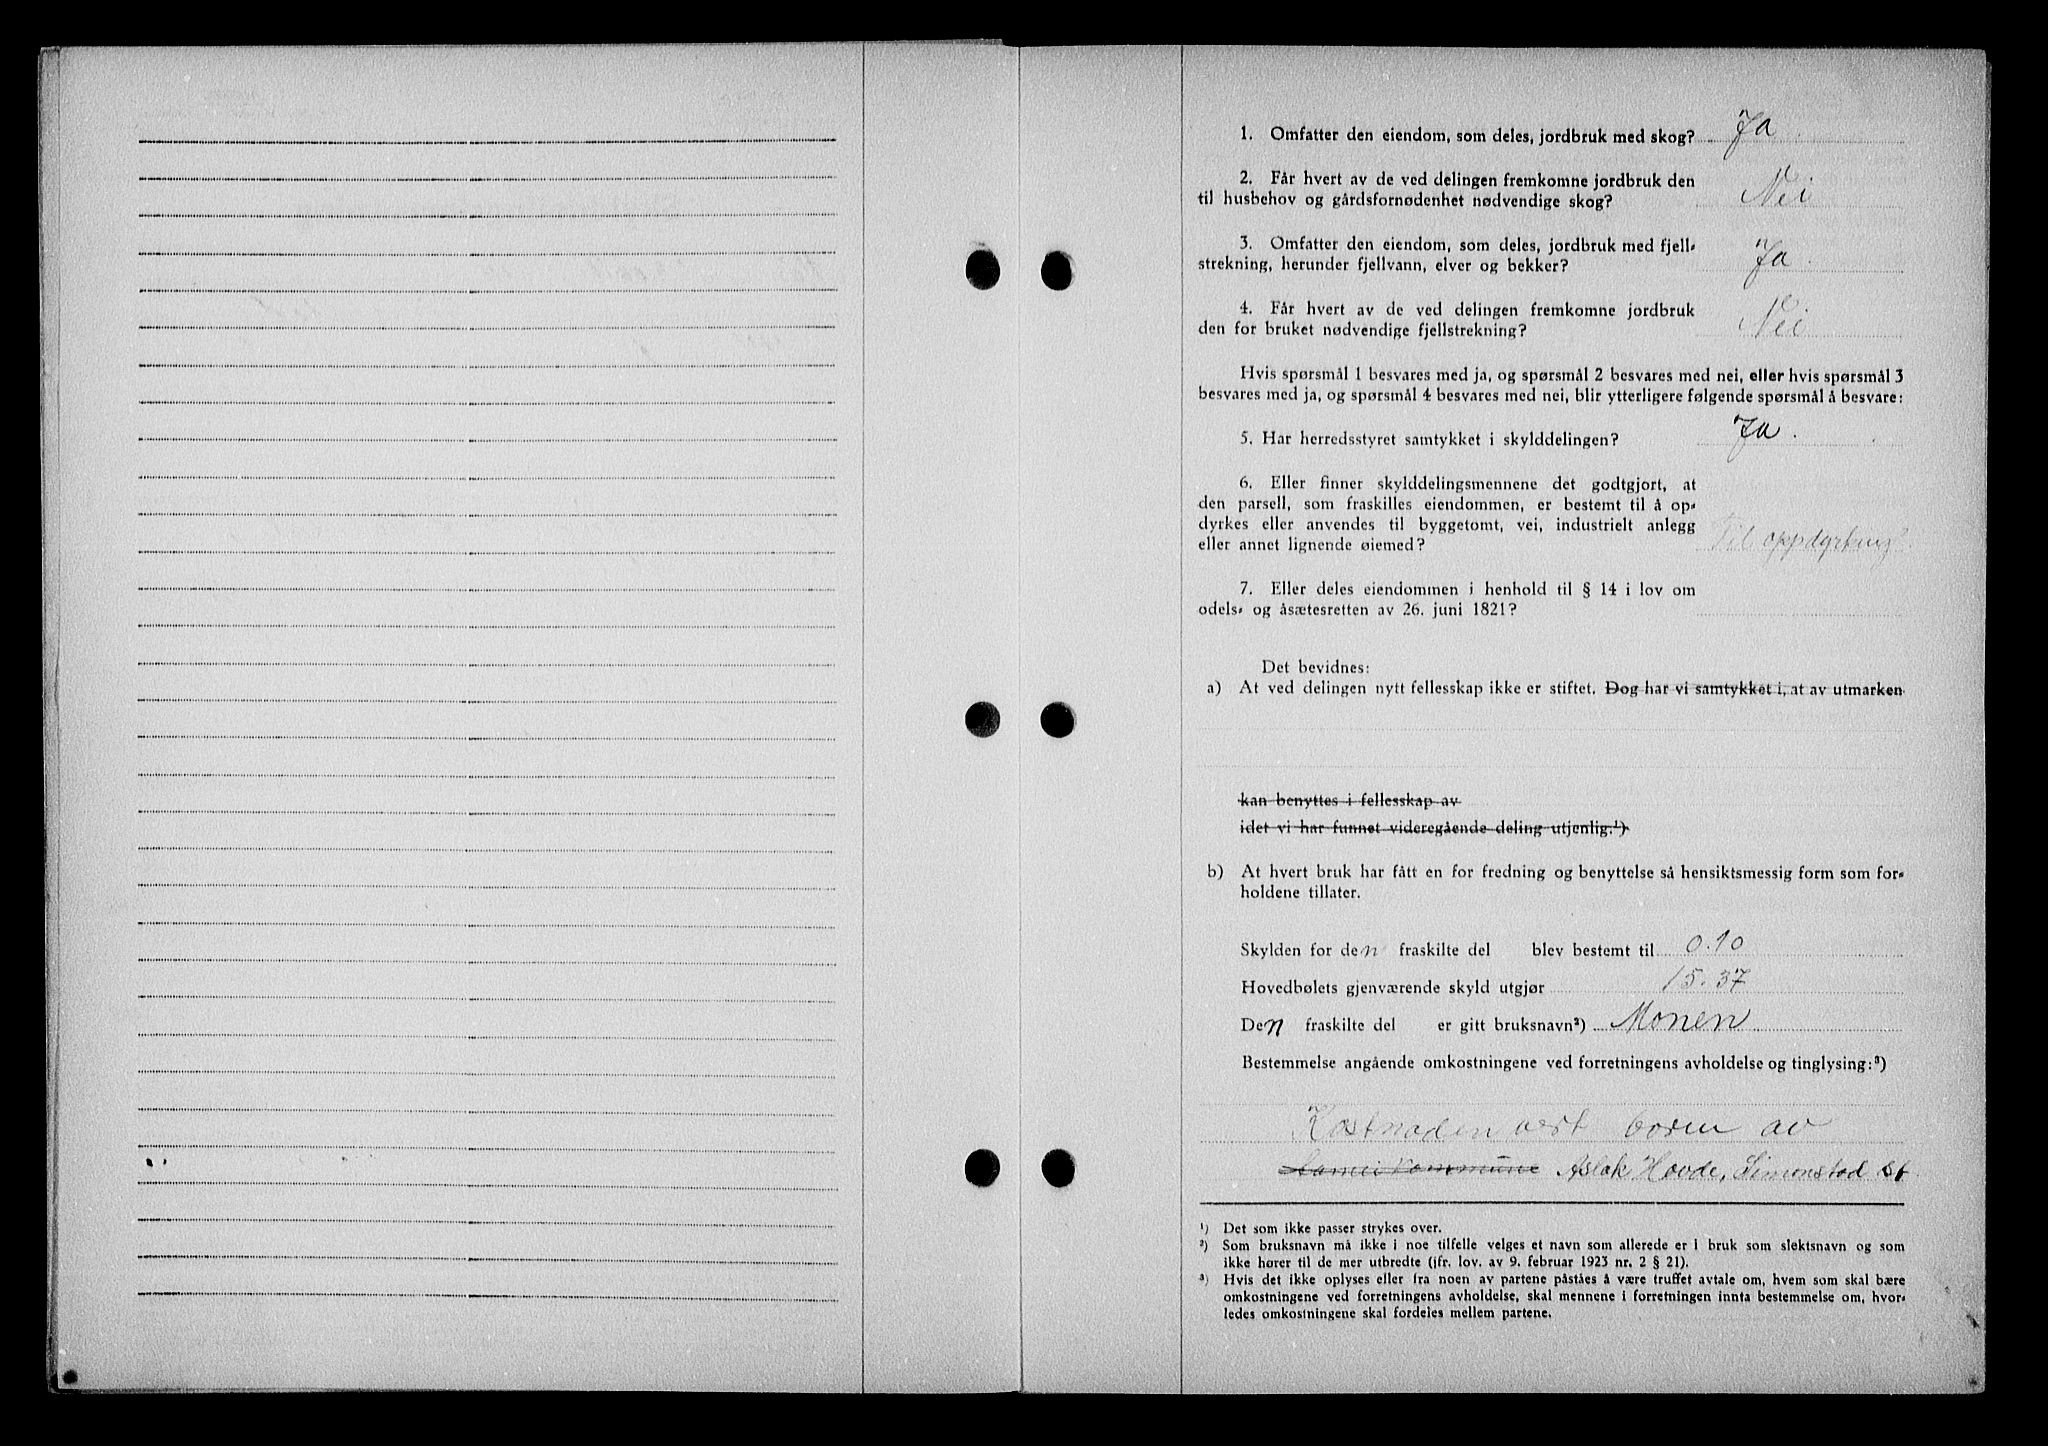 1. Omfatter den eiendom, som deles, jordbruk med skog? Ja.
2. Får hvert av de ved delingen fremkomne jordbruk den
til husbehov og gårdsfornødenhet nødvendige skog? Nei
3. Omfatter den eiendom, som deles, jordbruk med fjell-
strekning, herunder fjellvann, elver og bekker? Ja.
4. Får hvert av de ved delingen fremkomne jordbruk
den for bruket nødvendige fjellstrekning? Nei
Hvis spørsmål 1 besvares med ja, og spørsmål 2 besvares med nei, eller hvis spørsmål 3
besvares med ja, og spørsmål 4 besvares med nei, blir ytterligere følgende spørsmål å besvare:
5. Har herredsstyret samtykket i skylddelingen? Ja.
6. Eller finner skylddelingsmennene det godtgjort, at
den parsell, som fraskilles eiendommen, er bestemt til å op-
dyrkes eller anvendes til byggetomt, vei, industrielt anlegg
eller annet lignende øiemed? Til oppdyrking.
7. Eller deles eiendommen i henhold til § 14 i lov om
odels- og åsætesretten av 26. juni 1821?
Det bevidnes:
a) At ved delingen nytt fellesskap ikke er stiftet. Dog har vi samtykket i, at av utmarken
kan benyttes i fellesskap av
idet vi har funnet videregående deling utjenlig.¹)
b) At hvert bruk har fått en for fredning og benyttelse så hensiktsmessig form som for-
holdene tillater.
Skylden for den fraskilte del blev bestemt til 0.10
Hovedbølets gjenværende skyld utgjør 15.37
Den fraskilte del er gitt bruksnavn²) Monen
Bestemmelse angående omkostningene ved forretningens avholdelse og tinglysing:³)
Kostnaden vert boren av
kommune Aslak Hovde, Simonstad St
¹) Det som ikke passer strykes over.
²) Som bruksnavn må ikke i noe tilfelle velges et navn som allerede er i bruk som slektsnavn og som
ikke hører til de mer utbredte (jfr. lov. av 9. februar 1923 nr. 2 § 21).
³) Hvis det ikke oplyses eller fra noen av partene påstås å være truffet avtale om, hvem som skal bære
omkostningene ved forretningens avholdelse, skal mennene i forretningen innta bestemmelse om, hvor-
ledes omkostningene skal fordeles mellem partene.